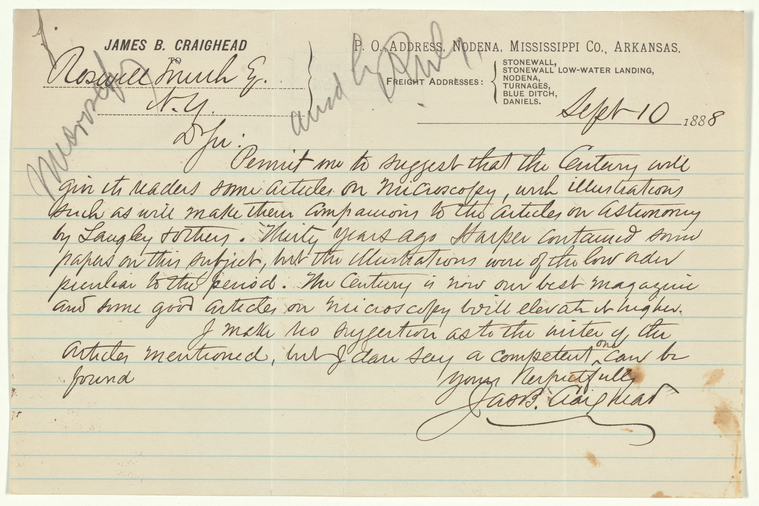 JAMES B. CRAIGHEAD
P. O. ADDRESS, NODENA, MISSISSIPPI CO., ARKANSAS.
FREIGHT ADDRESSES:
STONEWALL,
STONEWALL LOW-WATER LANDING,
NODENA,
TURNAGES,
BLUE DITCH,
DANIELS.
Microscopy
ansd by
Roswell Smith Eq.
N. Y.
Sept 10 1888
D Sir.
Permit me to suggest that the Century will
give its readers some articles on microscopy, with illustrations
such as will make them companions to the articles on astronomy
by Langley & others. Thirty years ago Harper contained some
papers on this subject, but the illustrations were of the low order
peculiar to the period. The Century is now our best magazine
and some good articles on microscopy will elevate it higher.
I make no suggestion as to the writer of the
articles mentioned, but I dare say a competent one can be
found
Yours Respectfully
Jas B. Craighead